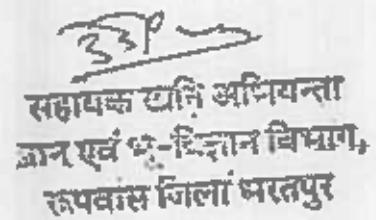 सहायक खनि अभियन्ता
खान एवं भू-विज्ञान विभाग,
रूपवास जिला भरतपुर